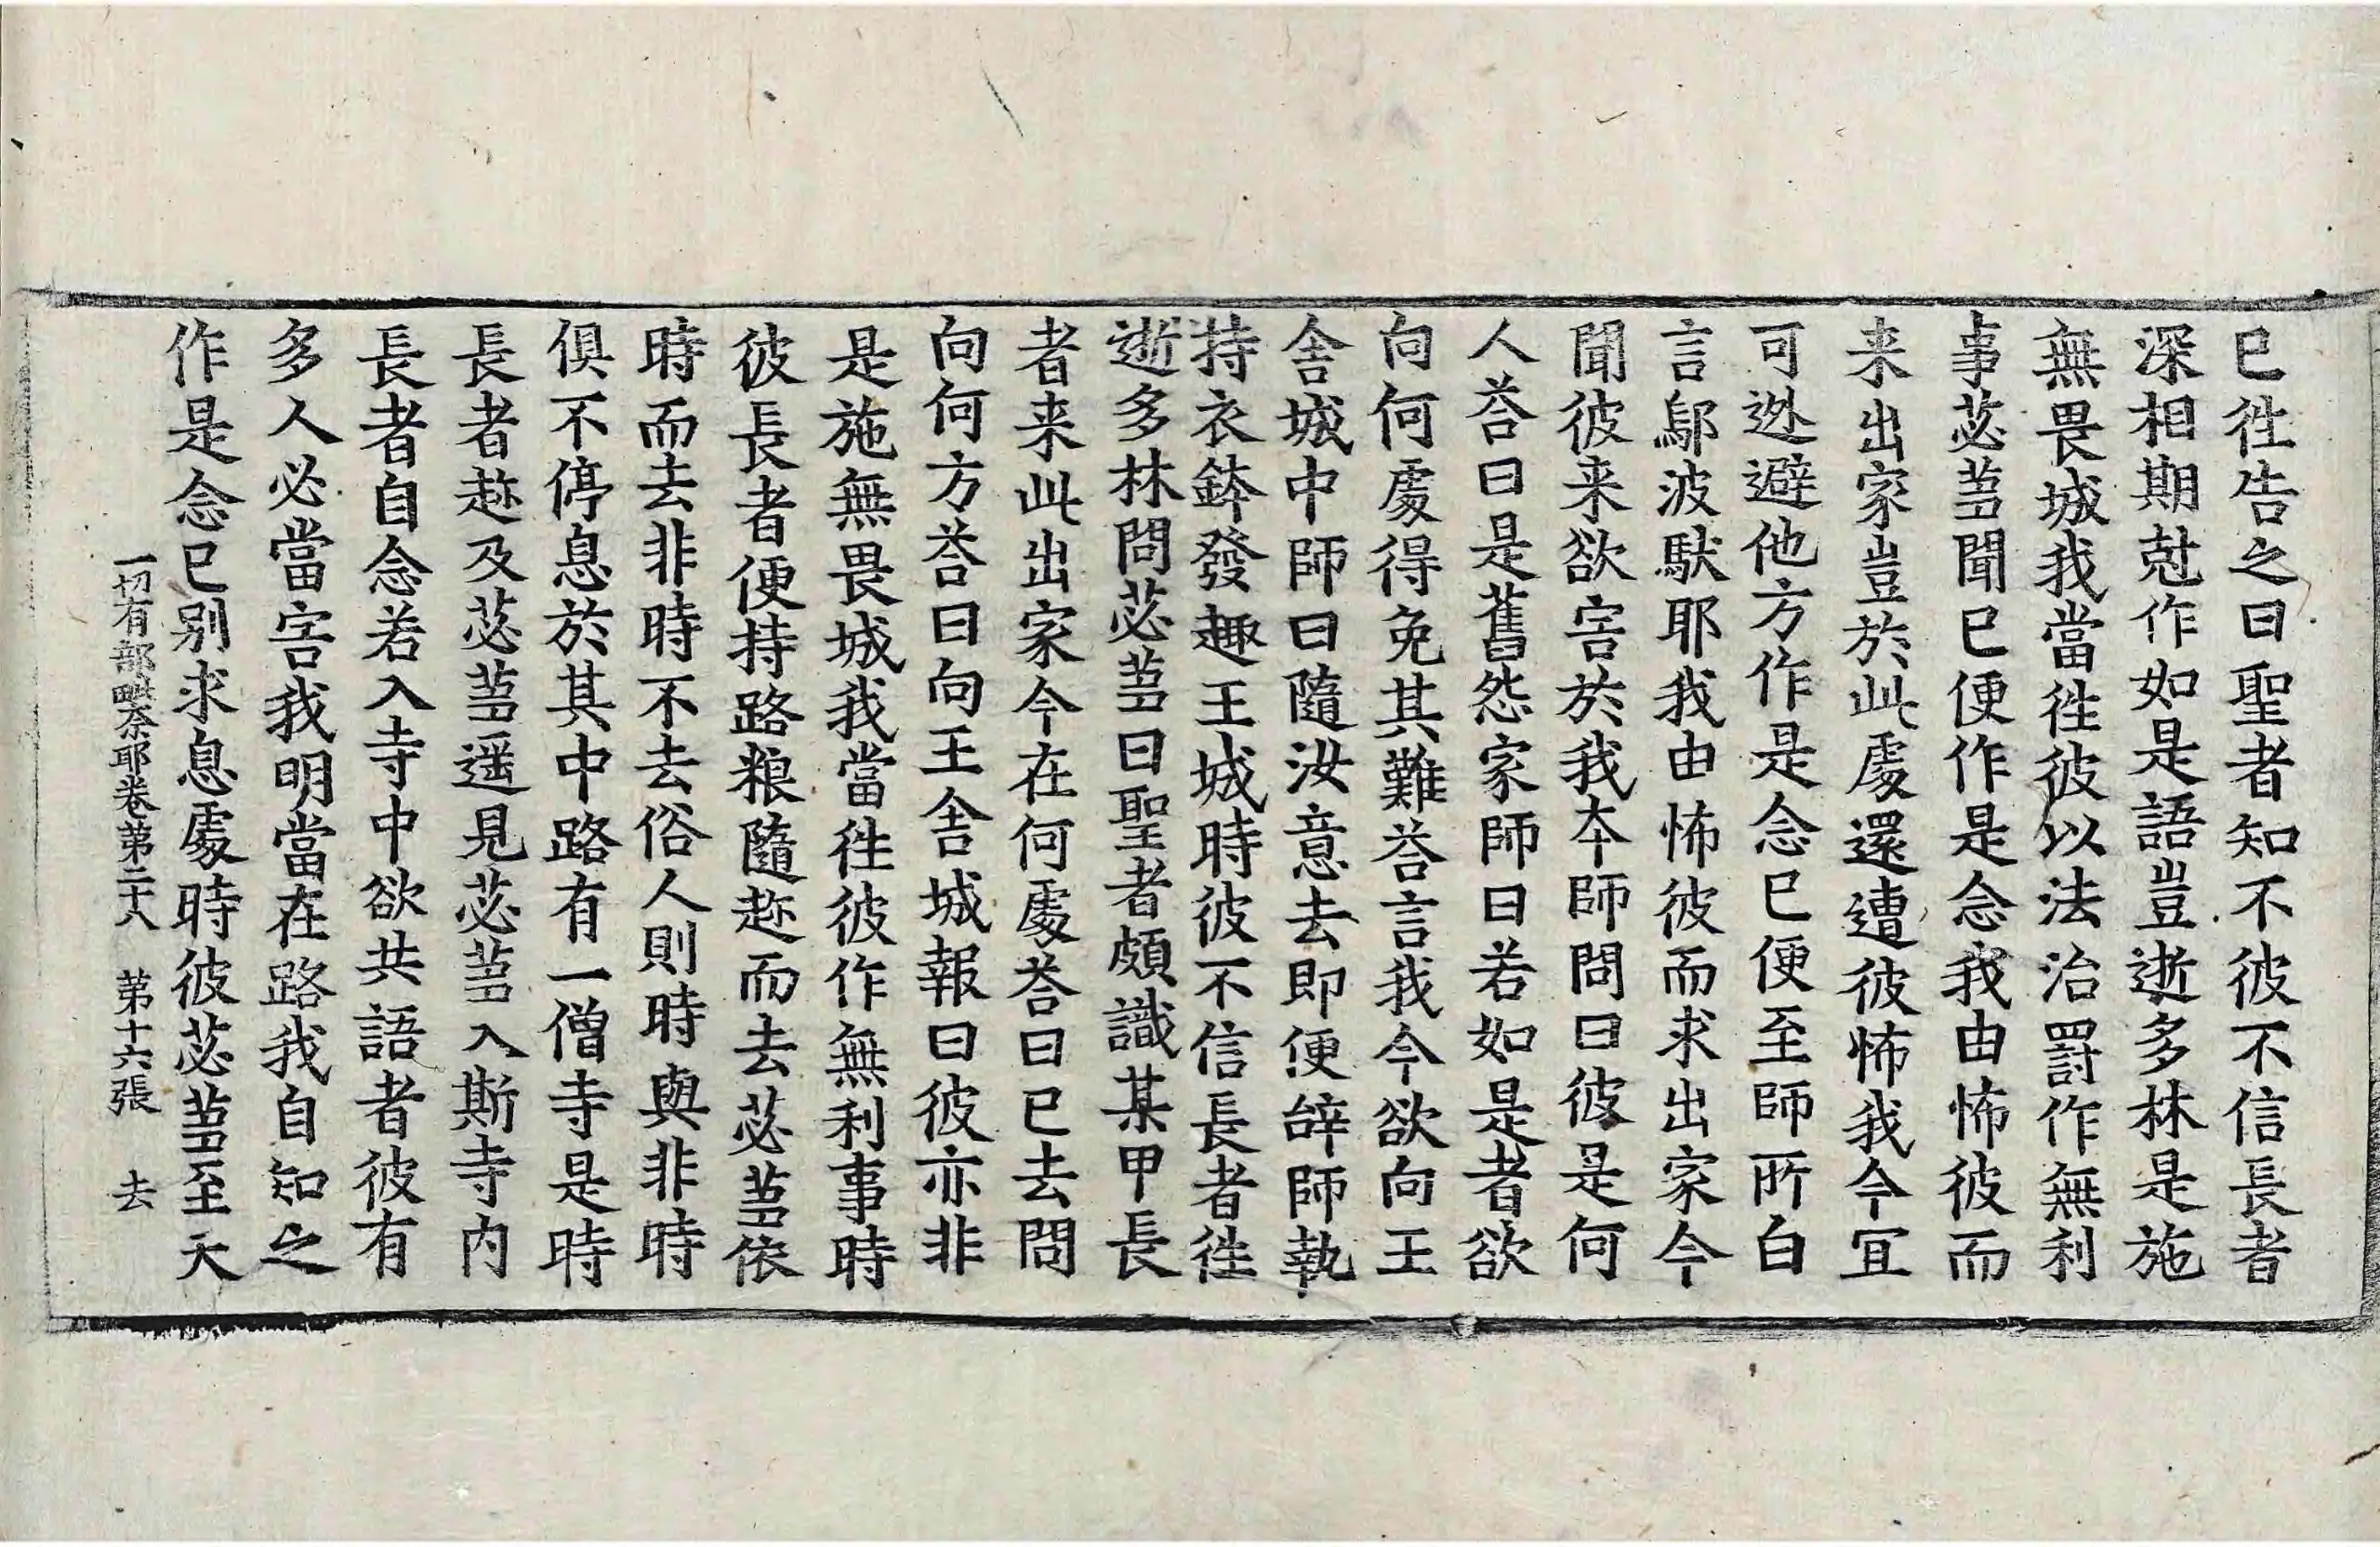 已徃告之曰聖者知不彼不信長者
深相期尅作如是語豈逝多林是施
無畏城我當徃彼以法治罸作無利
事苾蒭聞已便作是念我由怖彼而
来出家豈於此處還遭彼怖我今宜
可迯避他方作是念已便至師所白
言鄔波馱耶我由怖彼而求出家今
聞彼来欲害於我夲師問曰彼是何
人荅曰是舊怨家師曰若如是者欲
向何處得免其難荅言我今欲向王
舎城中師曰隨汝意去即便辝師執
持衣鉢發趣王城時彼不信長者徃
逝多林問苾蒭曰聖者頗識某甲長
者来此出家今在何處荅曰已去問
向何方荅曰向王舎城報曰彼亦非
是施無畏城我當徃彼作無利事時
彼長者便持路粮隨趂而去苾蒭依
時而去非時不去俗人則時與非時
俱不停息於其中路有一僧寺是時
長者趂及苾蒭遥見苾蒭入斯寺内
長者自念若入寺中欲共語者彼有
多人必當害我明當在路我自知之
作是念已别求息處時彼苾蒭至天
一切有部毗奈耶卷第二十八　第十六張　去